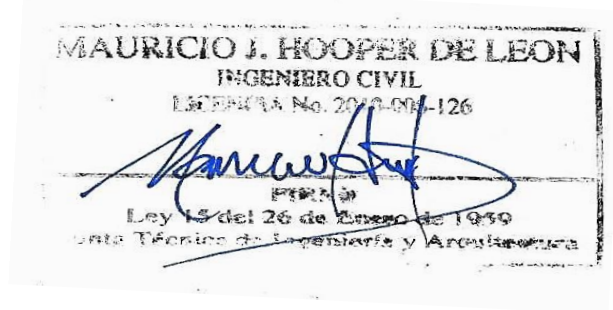 MAURICIO J. HOOPER DE LEON
INGENIERO CIVIL
LICENCIA No. 2018-006-126
FIRMA
Ley 15 del 26 de Enero de 1959
unta Técnica de Ingeniería y Arquitectura